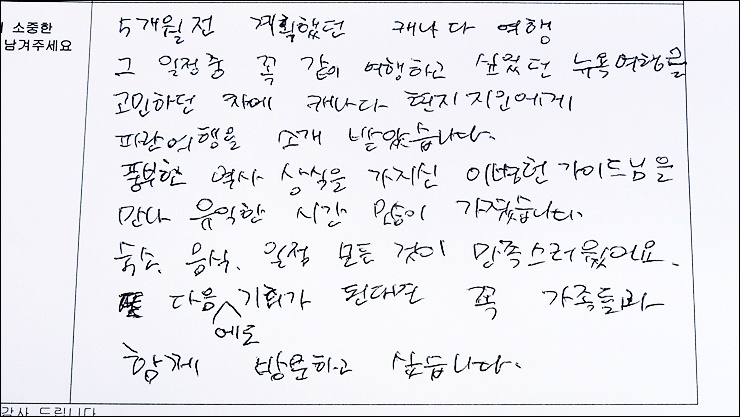 소중한
남겨주세요
5개월전 계획했던 캐나다 여행
그 일정중 꼭 같이 여행하고 싶었던 뉴욕여행을
고민하던 차에 캐나다 현지지인에게
파란여행을 소개 받았습니다.
풍부한 역사 상식을 가지신 이병헌가이드님을
만나 유익한 시간 많이 가졌습니다.
숙소, 음식, 일정 모든 것이 만족스러웠어요.
다음에도 기회가 된다면 꼭 가족들과
함께 방문하고 싶습니다.
감사 드립니다